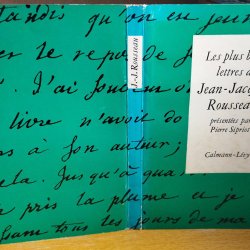 tandis qu'on en jou
er le repos de
s. J'ai
livre n'avoit do
s à son auteur;
ela. Jusqu'à qua
pris la plume et je
tous les jours de ma
J.-J. ROUSSEAU
Les plus b
lettres d
Jean-Jacq
Rousse
présentées par
Pierre Siprio
Calmann-Lévy